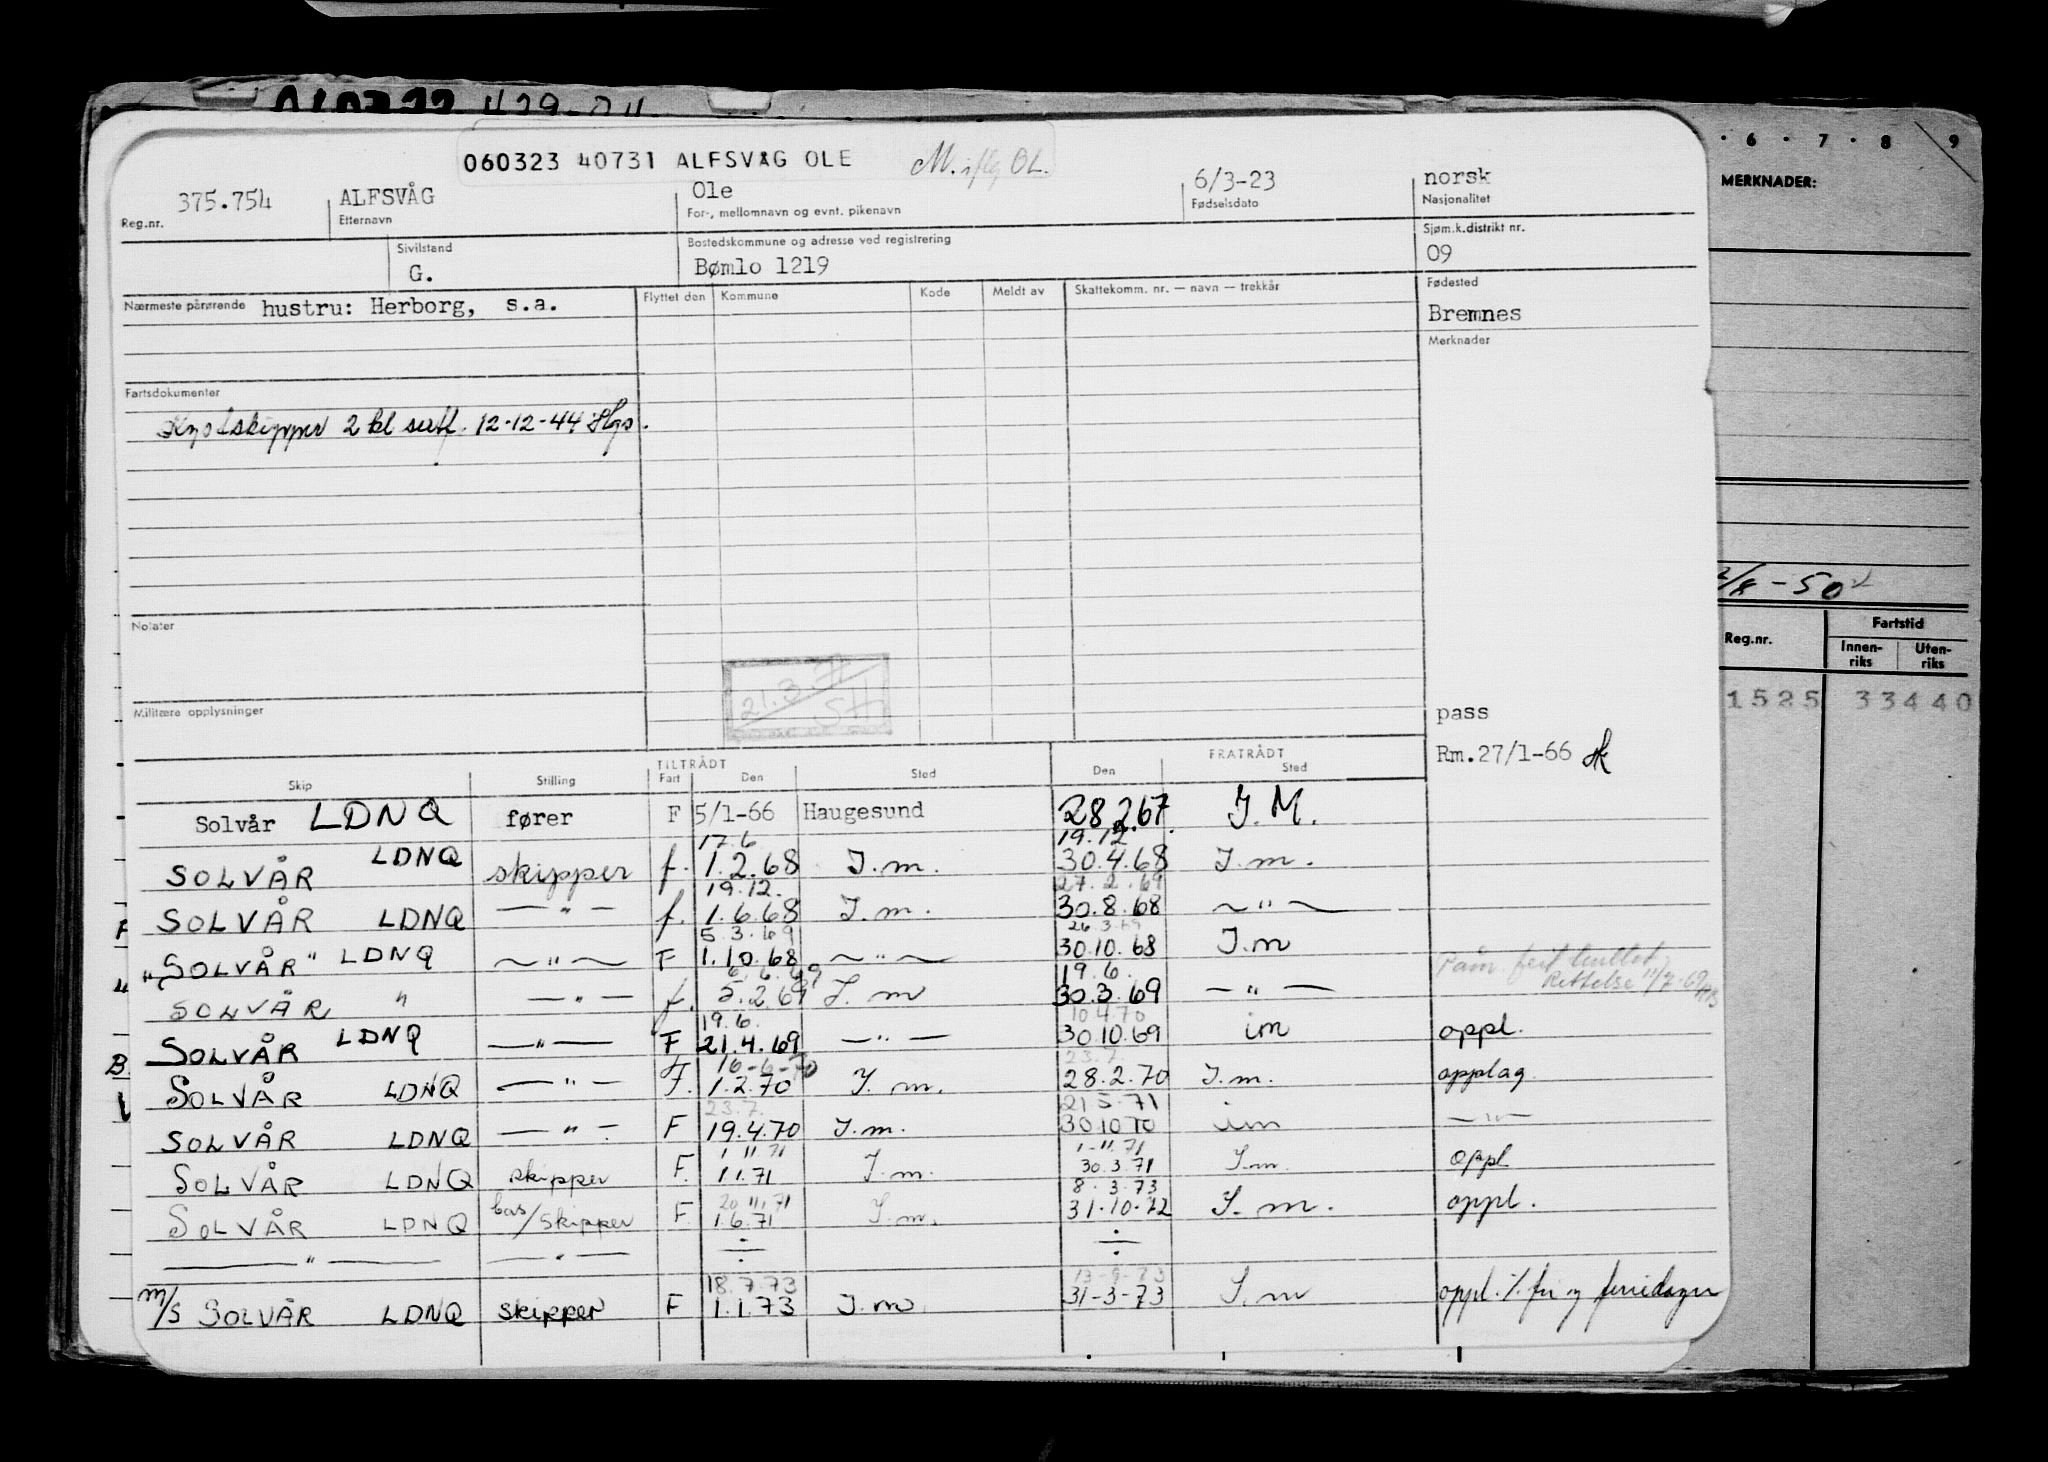 060323 40731 ALFSVÅG OLE
Reg.nr. 375.754
ALFSVÅG
Etternavn
Ole
For-, mellomnavn og evnt. pikenavn
6/3-23
Fødselsdato
norsk
Nasjonalitet
Sivilstand
G.
Bostedskommune og adresse ved registrering
Bømlo 1219
Sjøm.k.distrikt nr.
09
Nærmeste pårørende hustru: Herborg, s.a.
Flyttet den Kommune Kode Meldt av Skattekomm. nr. — navn — trekkår
Fødested
Bremnes
Merknader
Fartsdokumenter
Kystskipper 2 kl sertf. 12-12-44 Hgs.
Notater
21.3.
SH
Militære opplysninger
pass
Rm.27/1-66
TILTRÅDT FRATRÅDT
Skip Stilling Fart Den Sted Den Sted
Solvår LDNQ fører F 5/1-66 Haugesund 28.2.67 I.M.
17.6 19.12
SOLVÅR LDNQ skipper f. 1.2.68 I.m. 30.4.68 I.m.
19.12. 27.2.69
SOLVÅR LDNQ — " — f. 1.6.68 I.m. 30.8.68 ~ " ~
5.3.69 26.3.69
"SOLVÅR" LDNQ ~ " ~ F 1.10.68 ~ " ~ 30.10.68 I.m
6.6.69 19.6.
SOLVÅR " — " — f. 5.2.69 I.m 30.3.69 — " —
Rettelse
19.6. 10.4.70
SOLVÅR LDNQ — " — F 21.4.69 — " — 30.10.69 im oppl.
16-6-70 23.7.
SOLVÅR LDNQ — " — F. 1.2.70 I.m. 28.2.70 I.m. opplag
23.7. 21.5.71
SOLVÅR LDNQ — " — F 19.4.70 I.m. 30.10.70 im — " —
1.11.71 1-11.71
SOLVÅR LDNQ skipper F. 1.1.71 I.m. 30.3.71 I.m. oppl
20.11.71 8.3.73
SOLVÅR LDNQ bas/skipper F. 1.6.71 I.m. 31.10.72 I.m. oppl.
— " — — " — ÷ ÷
18.7.73 13-9-73
m/s SOLVÅR LDNQ skipper F 1.1.73 I.m. 31-3-73 I.m oppl. % fri og feriedager
6 · 7 · 8 9
MERKNADER:
/8 - 50
Reg.nr.
Fartstid
Innen-riks
Uten-riks
1525 33440